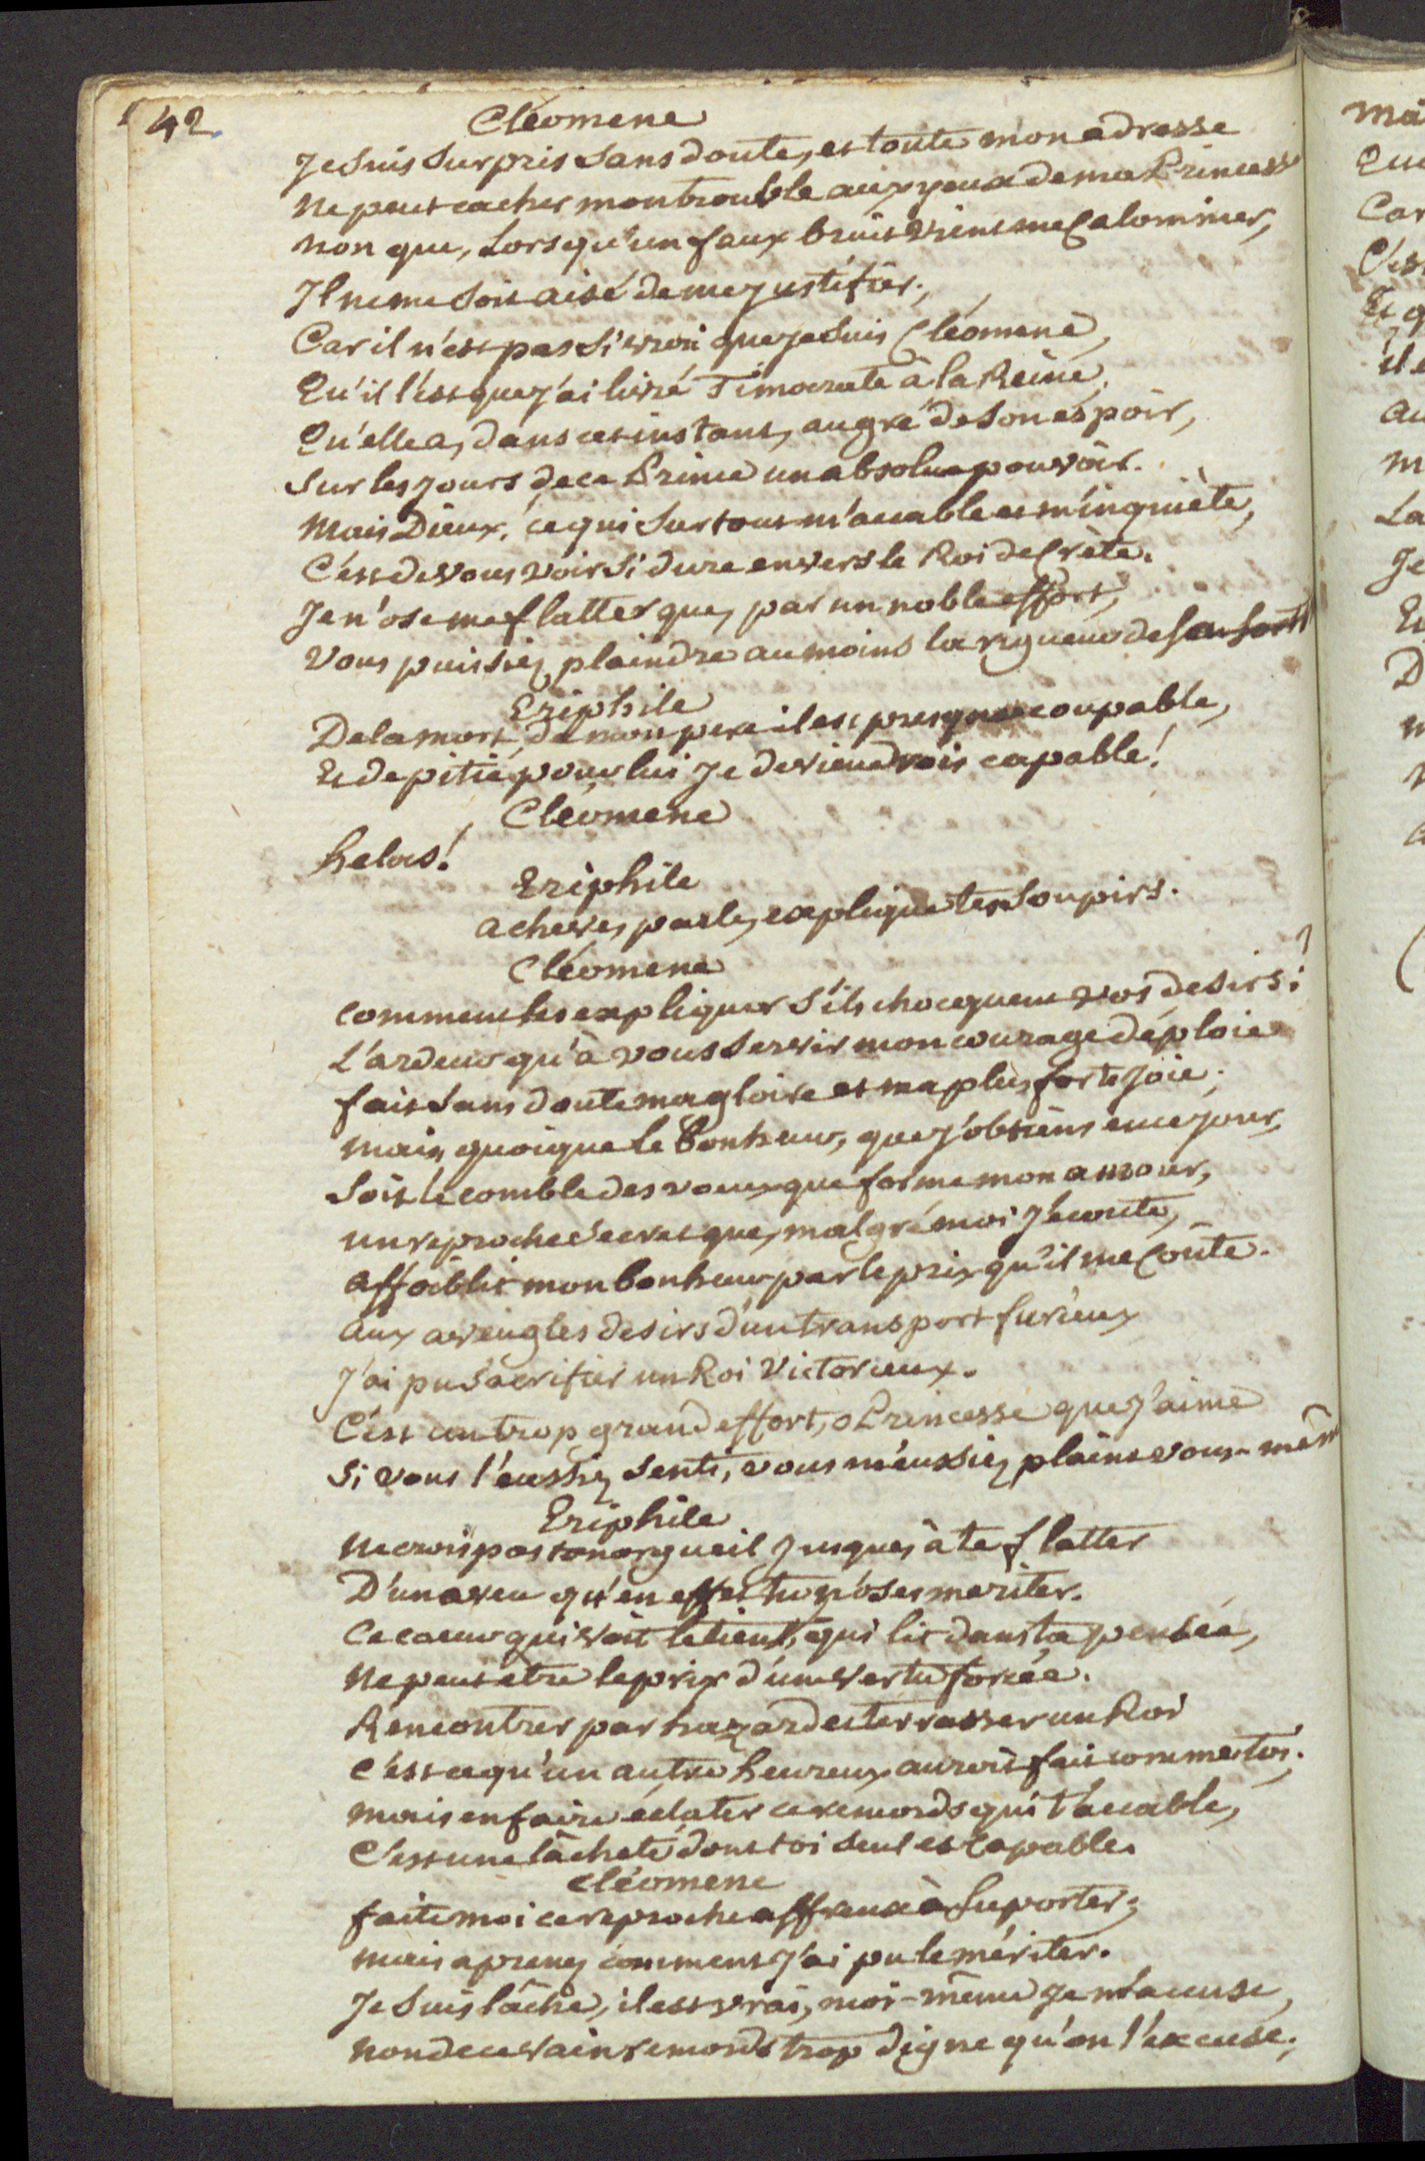 42.
Cléomene
Je suis surpris sans doute, et toute mon adresse
Ne peut cacher mon trouble aux yeux de ma Princesse
non que, Lorsqu'un faux bruit vient me Calomnier,
Il ne me soit aisé de me justifier;
Car il n'est pas si vrai que je suis Cléomene,
Qu'il l'est que j'ai livré Timocrate à la Reine,
Qu'elle a, dans cet instant, au gré de son espoir,
Sur les jours de ce Prince un absolu pouvoir.
Mais Dieux! ce qui surtout m'accable et m'inquiète,
C'est de vous voir si dure envers le Roi de Crète.
Je n'ose me flatter que, par un noble effort,
Vous puissiez plaindre au moins la rigueur de son sort
Eriphile
De la mort de mon pere il est presque coupable,
Et de pitié pour lui je deviendrois capable!
Cléomene
helas!
Eriphile
acheve, parle, explique tes soupirs.
Cléomene
comment les expliquer s'ils chocquent vos desirs?
L'ardeur qu'à vous servir mon courage déploie
fait sans doute ma gloire et ma plus forte joie;
mais, quoique le bonheur, que j'obtiens en ce jour,
Soit le comble des voeux que forme mon amour,
un reproche secret que, malgré moi j'ecoute,
affoiblit mon bonheur par le prix qu'il me Coûte.
aux aveugles desirs d'un transport furieux
J'ai pu sacrifier un Roi Victorieux.
C'est un trop grand effort, o Princesse que j'aime
Si vous l'eussiez senti, vous m'eussiez plaint vous-mêm
Eriphile
Ne crois pas ton orgueil jusques à te flatter
D'un aveu qu'en effet tu n'oses meriter.
Ce coeur qui voit le tient, qui lit dans ta pensée,
Ne peut etre le prix d'une vertu forcée.
Rencontrer par hazard et terrasser un Roi
c'est ce qu'un autre heureux auroit fait comme toi;
mais en faire éclater ce remords qui t'accable,
C'est une lâcheté dont toi seul es Capable.
Cléomene
faite moi ce reproche affreux à suporter;
mais aprenez comment j'ai pu le mériter.
Je suis lâche, il est vrai, moi-même je m'accuse,
non de ce vain remords trop digne qu'on l'excuse;
ma
Que
Car
C'est
Et q
il e
au
m
La
Je
Et
D